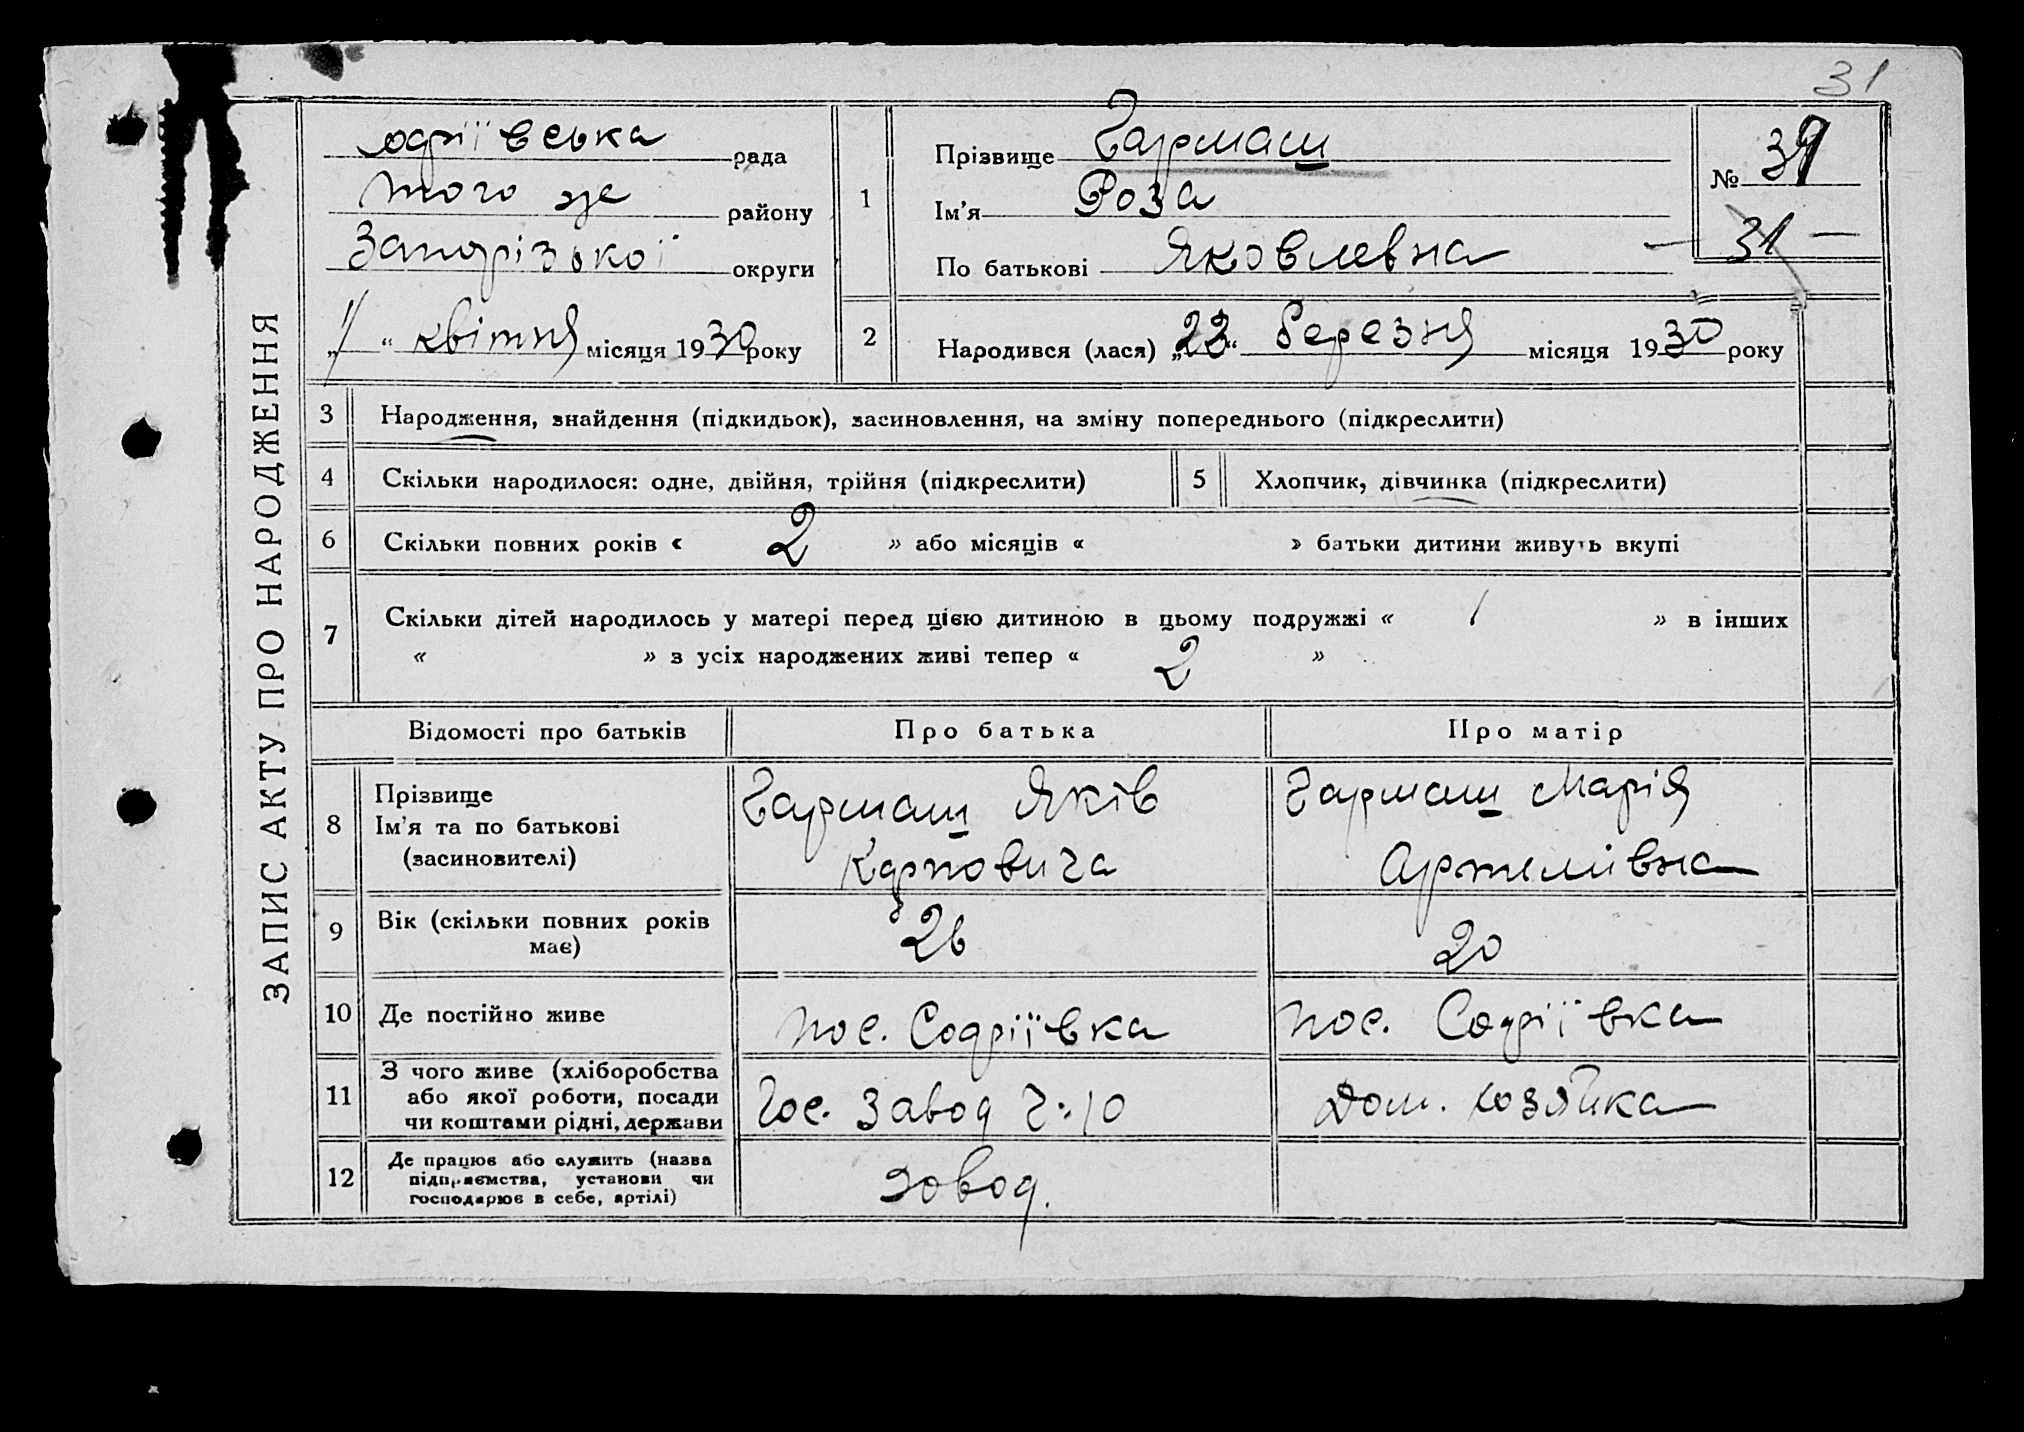 31
ЗАПИС АКТУ ПРО НАРОДЖЕННЯ
Софіївська рада
того же району
Запорізької округи
„1/“ квітня місяця 1930 року
1 Прізвище Гармаш
Ім'я Роза
По батькові Яковлевна
№ 39
— 31 —
2 Народився (лася) „23“ березня місяця 1930 року
3 Народження, знайдення (підкидьок), засиновлення, на зміну попереднього (підкреслити)
4 Скільки народилося: одне, двійня, трійня (підкреслити) 5 Хлопчик, дівчинка (підкреслити)
6 Скільки повних років « 2 » або місяців « » батьки дитини живуть вкупі
7 Скільки дітей народилось у матері перед цією дитиною в цьому подружжі « 1 » в інших
« » з усіх народжених живі тепер « 2 »
Відомості про батьків Про батька Про матір
8 Прізвище
Ім'я та по батькові
(засиновителі)
Гармаш Яків
Карповича
Гармаш Марія
Артемівна
9 Вік (скільки повних років
має)
26
20
10 Де постійно живе
пос. Софіївка
пос. Софіївка
11 З чого живе (хліборобства
або якої роботи, посади
чи коштами рідні, держави
Гос. Завод Ч. 10
Дом. хозяйка
12 Де працює або служить (назва
підприємства, установи чи
господарює в себе, артілі)
завод.